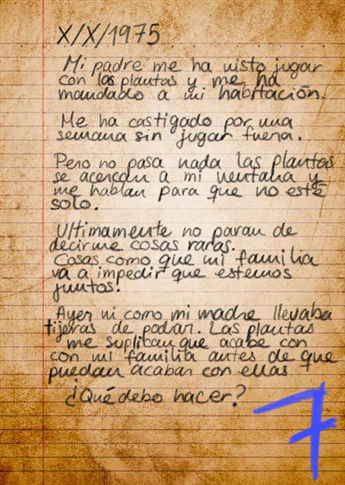 X/X/1975
Mi padre me ha visto jugar
con las plantas y me ha
mandado a mi habitación.
Me ha castigado por una
semana sin jugar fuera.
Pero no pasa nada las plantas
se acercan a mi ventana y
me hablan para que no esté
solo.
Ultimamente no paran de
decirme cosas raras.
Cosas como que mi familia
va a impedir que estemos
juntos.
Ayer vi como mi madre llevaba
tijeras de podar. Las plantas
me suplican que acabe con
con mi familia antes de que
puedan acabar con ellas
¿Qué debo hacer?
7